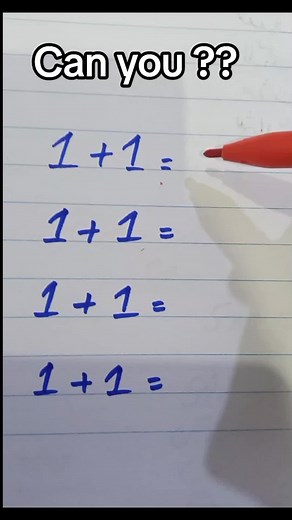 Can you ??
1 + 1 =
1 + 1 =
1 + 1 =
1 + 1 =